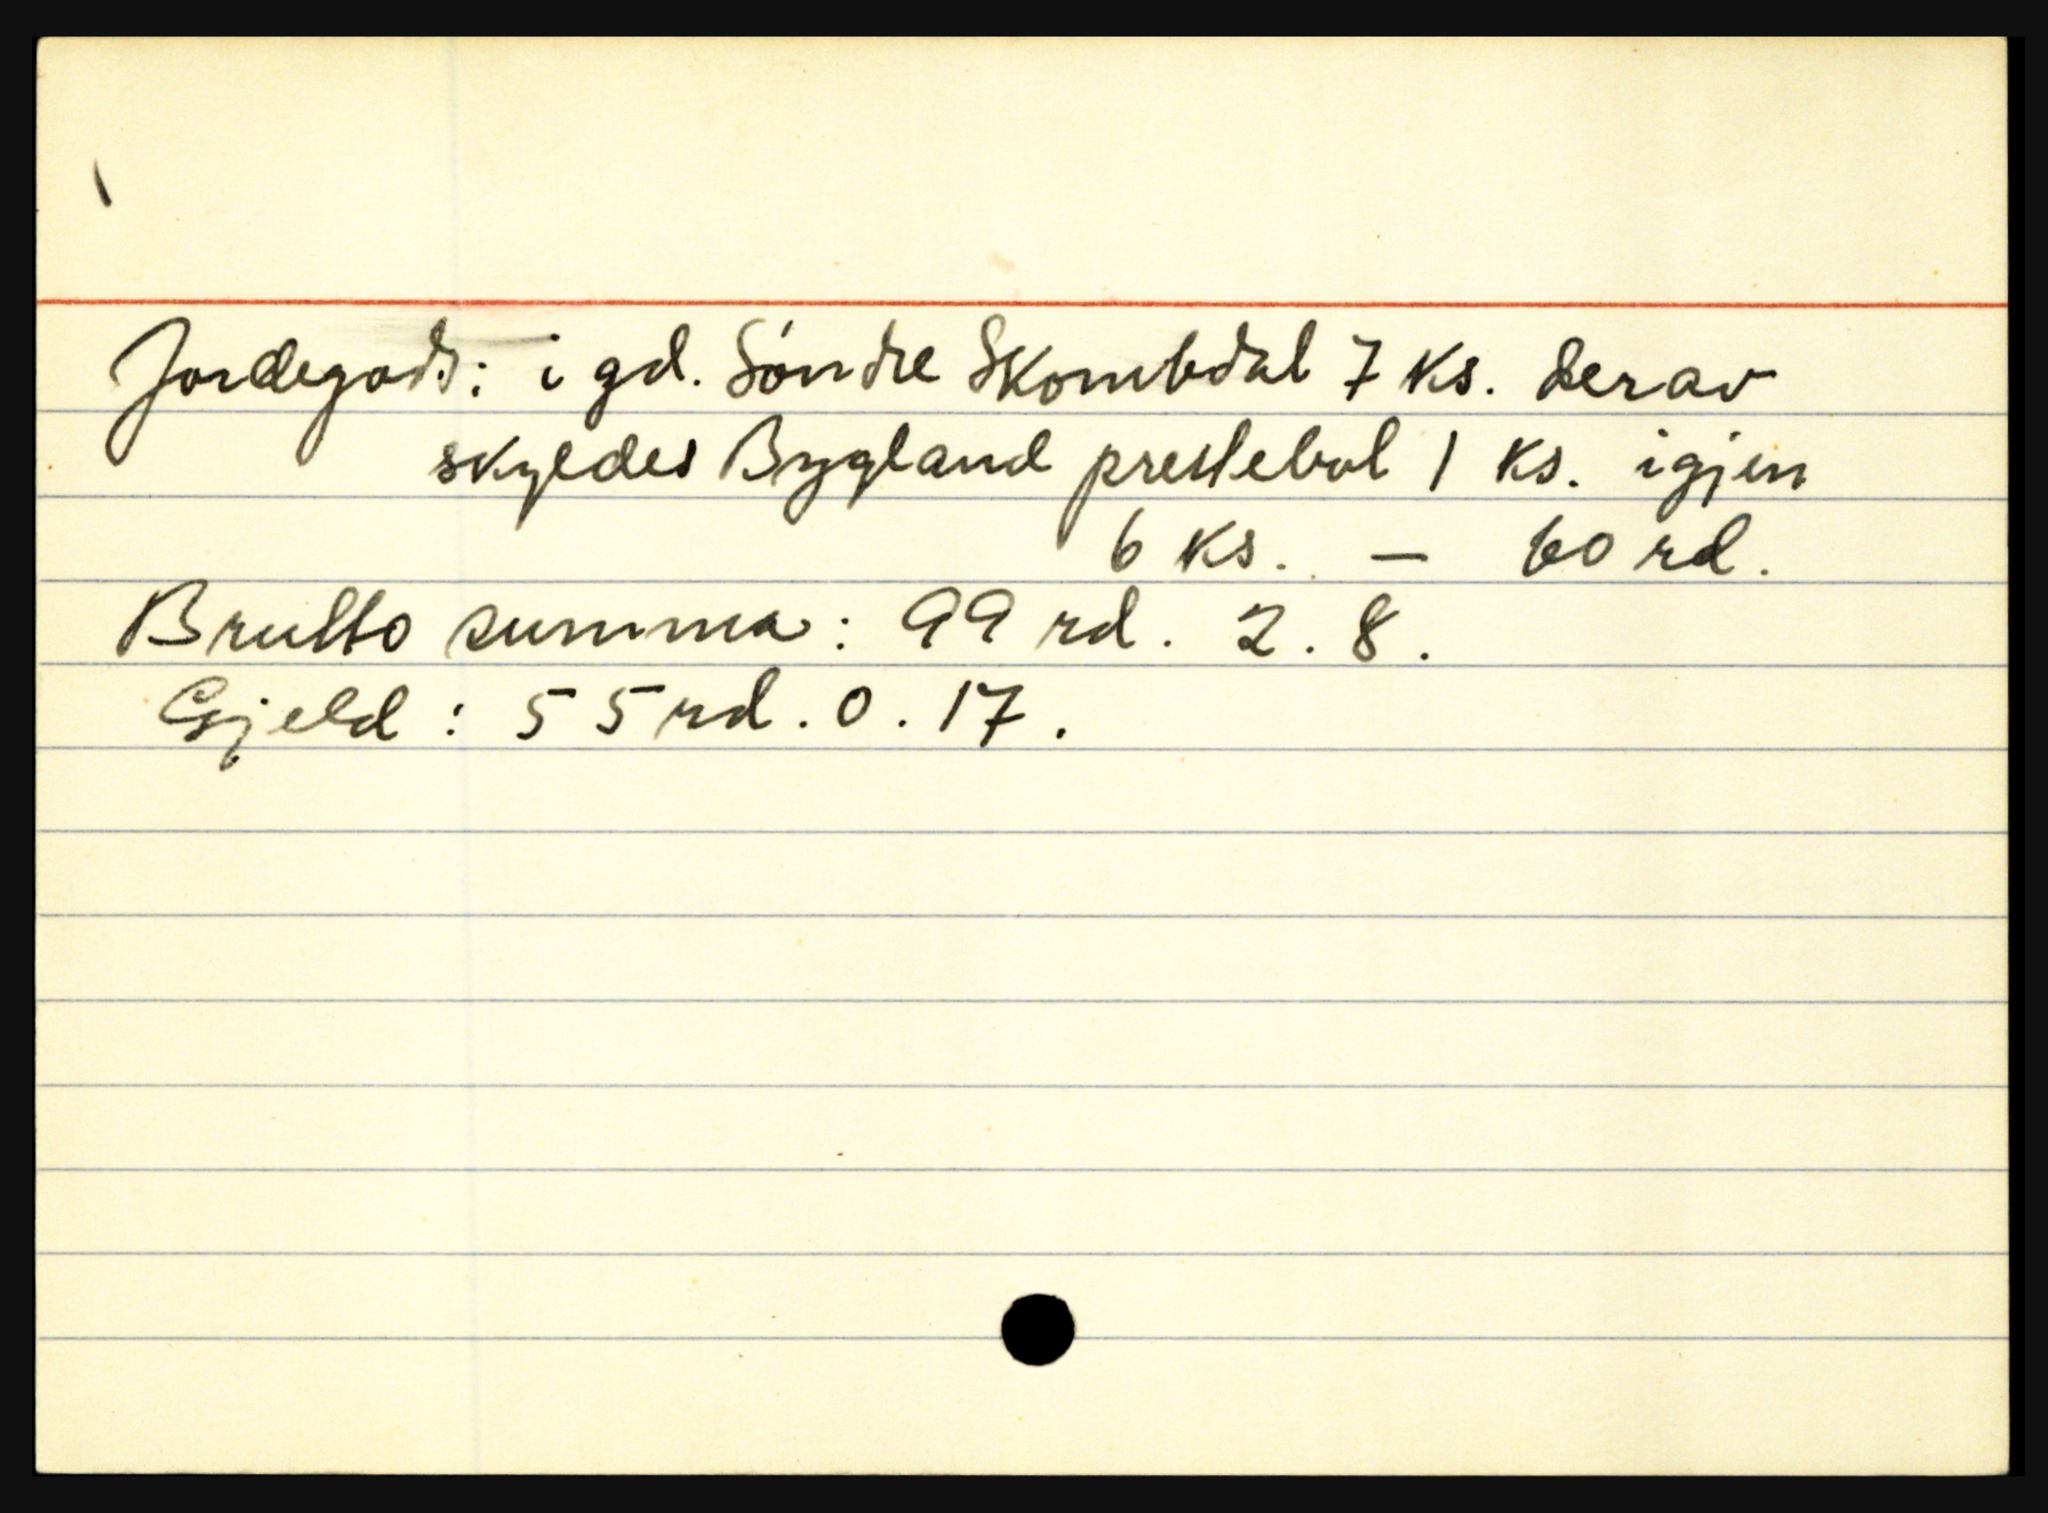 Jordegods: i gd. Søndre Skombdal 7 ks. derav
skyldes Bygland prestebol 1 ks. igjen
6 ks. — 60 rd.
Brutto summa: 99 rd. 2. 8.
Gjeld: 55 rd. 0. 17.